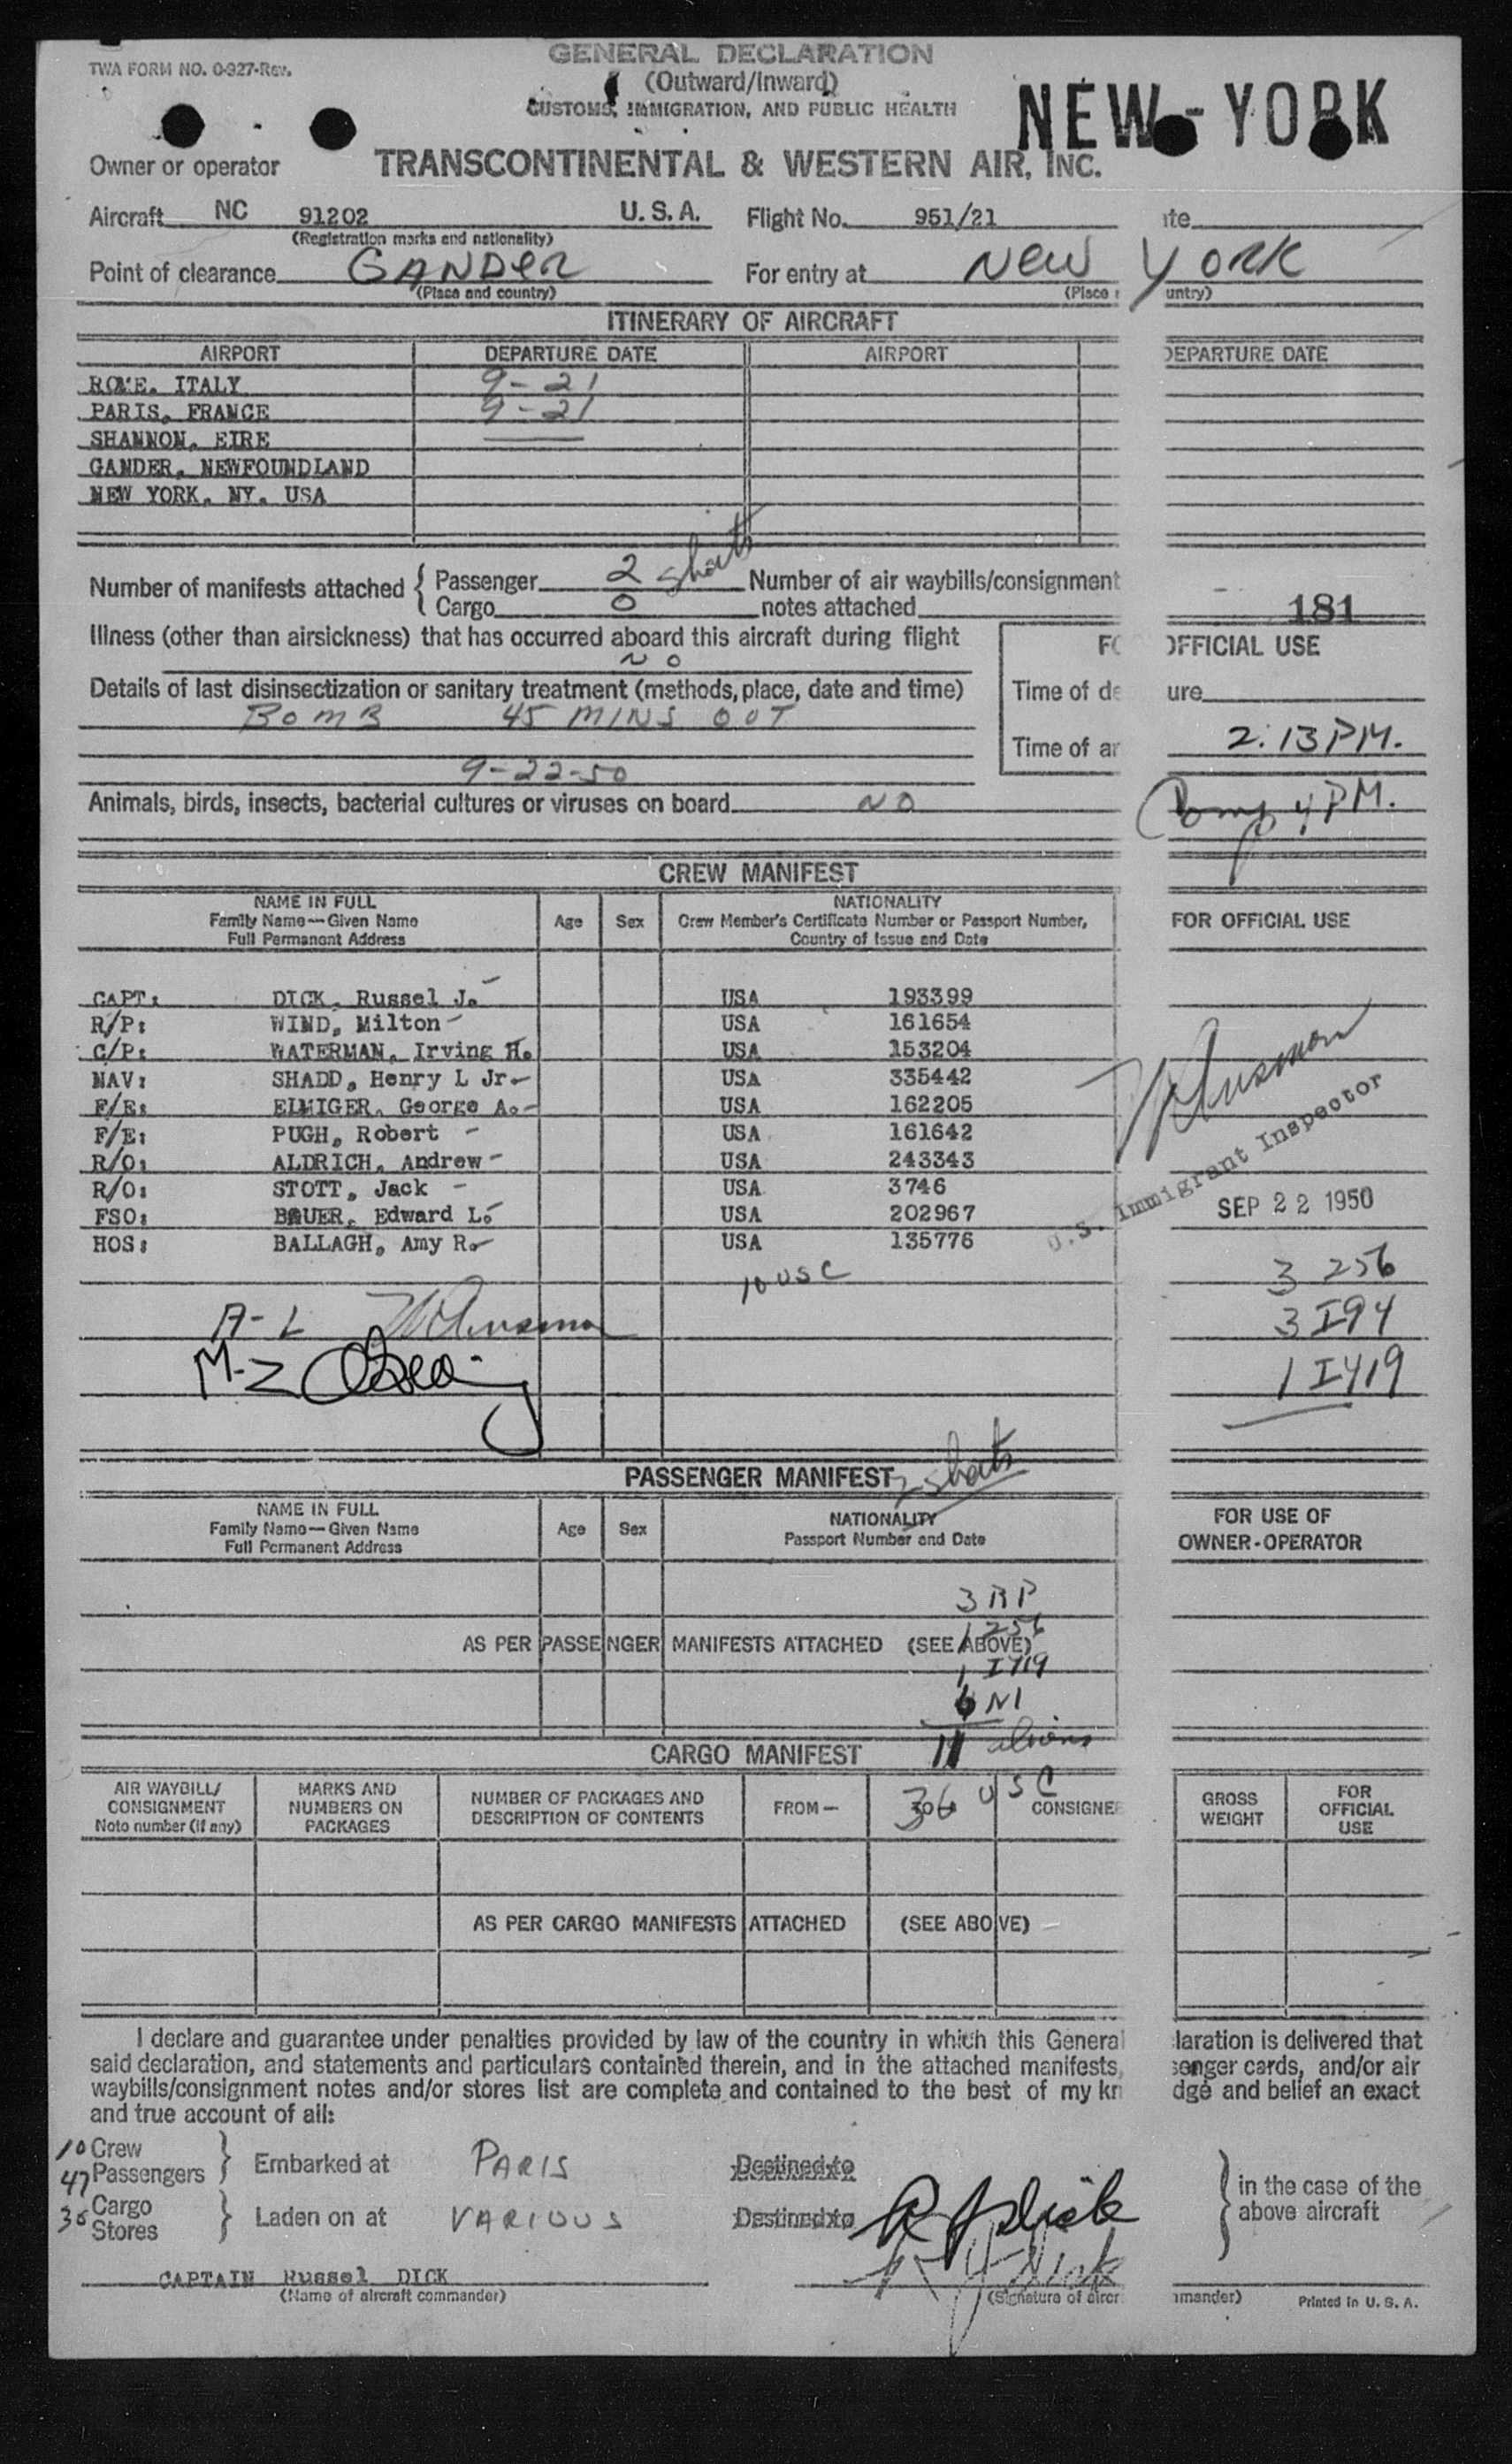 TWA FORM NO. 0-927-Rev.
GENERAL DECLARATION
(Outward/Inward)
CUSTOMS, IMMIGRATION, AND PUBLIC HEALTH
NEW-YORK
Owner or operator TRANSCONTINENTAL & WESTERN AIR, INC.
Aircraft NC 91202 U.S.A. Flight No. 951/21 te
(Registration marks and nationality)
Point of clearance GANDER For entry at NEW YORK
(Place and country) (Place untry)
ITINERARY OF AIRCRAFT
AIRPORT DEPARTURE DATE AIRPORT DEPARTURE DATE
ROME. ITALY 9-21
PARIS, FRANCE 9-21
SHANNON, EIRE
GANDER, NEWFOUNDLAND
NEW YORK, NY. USA
Number of manifests attached { Passenger 2 sheets Number of air waybills/consignment
Cargo 0 notes attached 181
Illness (other than airsickness) that has occurred aboard this aircraft during flight
NO
FO OFFICIAL USE
Details of last disinsectization or sanitary treatment (methods, place, date and time)
Time of de ure
BOMB 45 MINS OUT
Time of ar 2:13 PM.
9-22-50
Animals, birds, insects, bacterial cultures or viruses on board NO
4 PM.
CREW MANIFEST
NAME IN FULL
Family Name—Given Name
Full Permanent Address
Age Sex
NATIONALITY
Crew Member's Certificate Number or Passport Number,
Country of Issue and Date
FOR OFFICIAL USE
CAPT: DICK, Russel J. USA 193399
R/P: WIND, Milton USA 161654
C/P: WATERMAN, Irving H. USA 153204
NAV: SHADD, Henry L Jr. USA 335442
F/E: ELMIGER, George A. USA 162205
F/E: PUGH, Robert USA 161642
R/O: ALDRICH, Andrew USA 243343
R/O: STOTT, Jack USA 3746
FSO: BAUER, Edward L. USA 202967
HOS: BALLAGH, Amy R. USA 135776
U.S. Immigrant Inspector
SEP 22 1950
10 USC
3 256
3 I94
1 I419
A-L
M-Z
PASSENGER MANIFEST 2 sheets
NAME IN FULL
Family Name—Given Name
Full Permanent Address
Age Sex
NATIONALITY
Passport Number and Date
FOR USE OF
OWNER-OPERATOR
3 RP
1 256
AS PER PASSENGER MANIFESTS ATTACHED (SEE ABOVE)
1 I419
6 NI
11 aliens
CARGO MANIFEST
36 USC
AIR WAYBILL/
CONSIGNMENT
Note number (if any)
MARKS AND
NUMBERS ON
PACKAGES
NUMBER OF PACKAGES AND
DESCRIPTION OF CONTENTS
FROM—
CONSIGNEE
GROSS
WEIGHT
FOR
OFFICIAL
USE
AS PER CARGO MANIFESTS ATTACHED (SEE ABOVE)
I declare and guarantee under penalties provided by law of the country in which this General laration is delivered that
said declaration, and statements and particulars contained therein, and in the attached manifests, senger cards, and/or air
waybills/consignment notes and/or stores list are complete and contained to the best of my kn dge and belief an exact
and true account of all:
10 Crew
47 Passengers } Embarked at PARIS Destined to
36 Cargo
Stores } Laden on at VARIOUS Destined to
} in the case of the
above aircraft
R J Dick
R J Dick
CAPTAIN Russel DICK
(Name of aircraft commander) (Signature of aircr mmander) Printed in U.S.A.